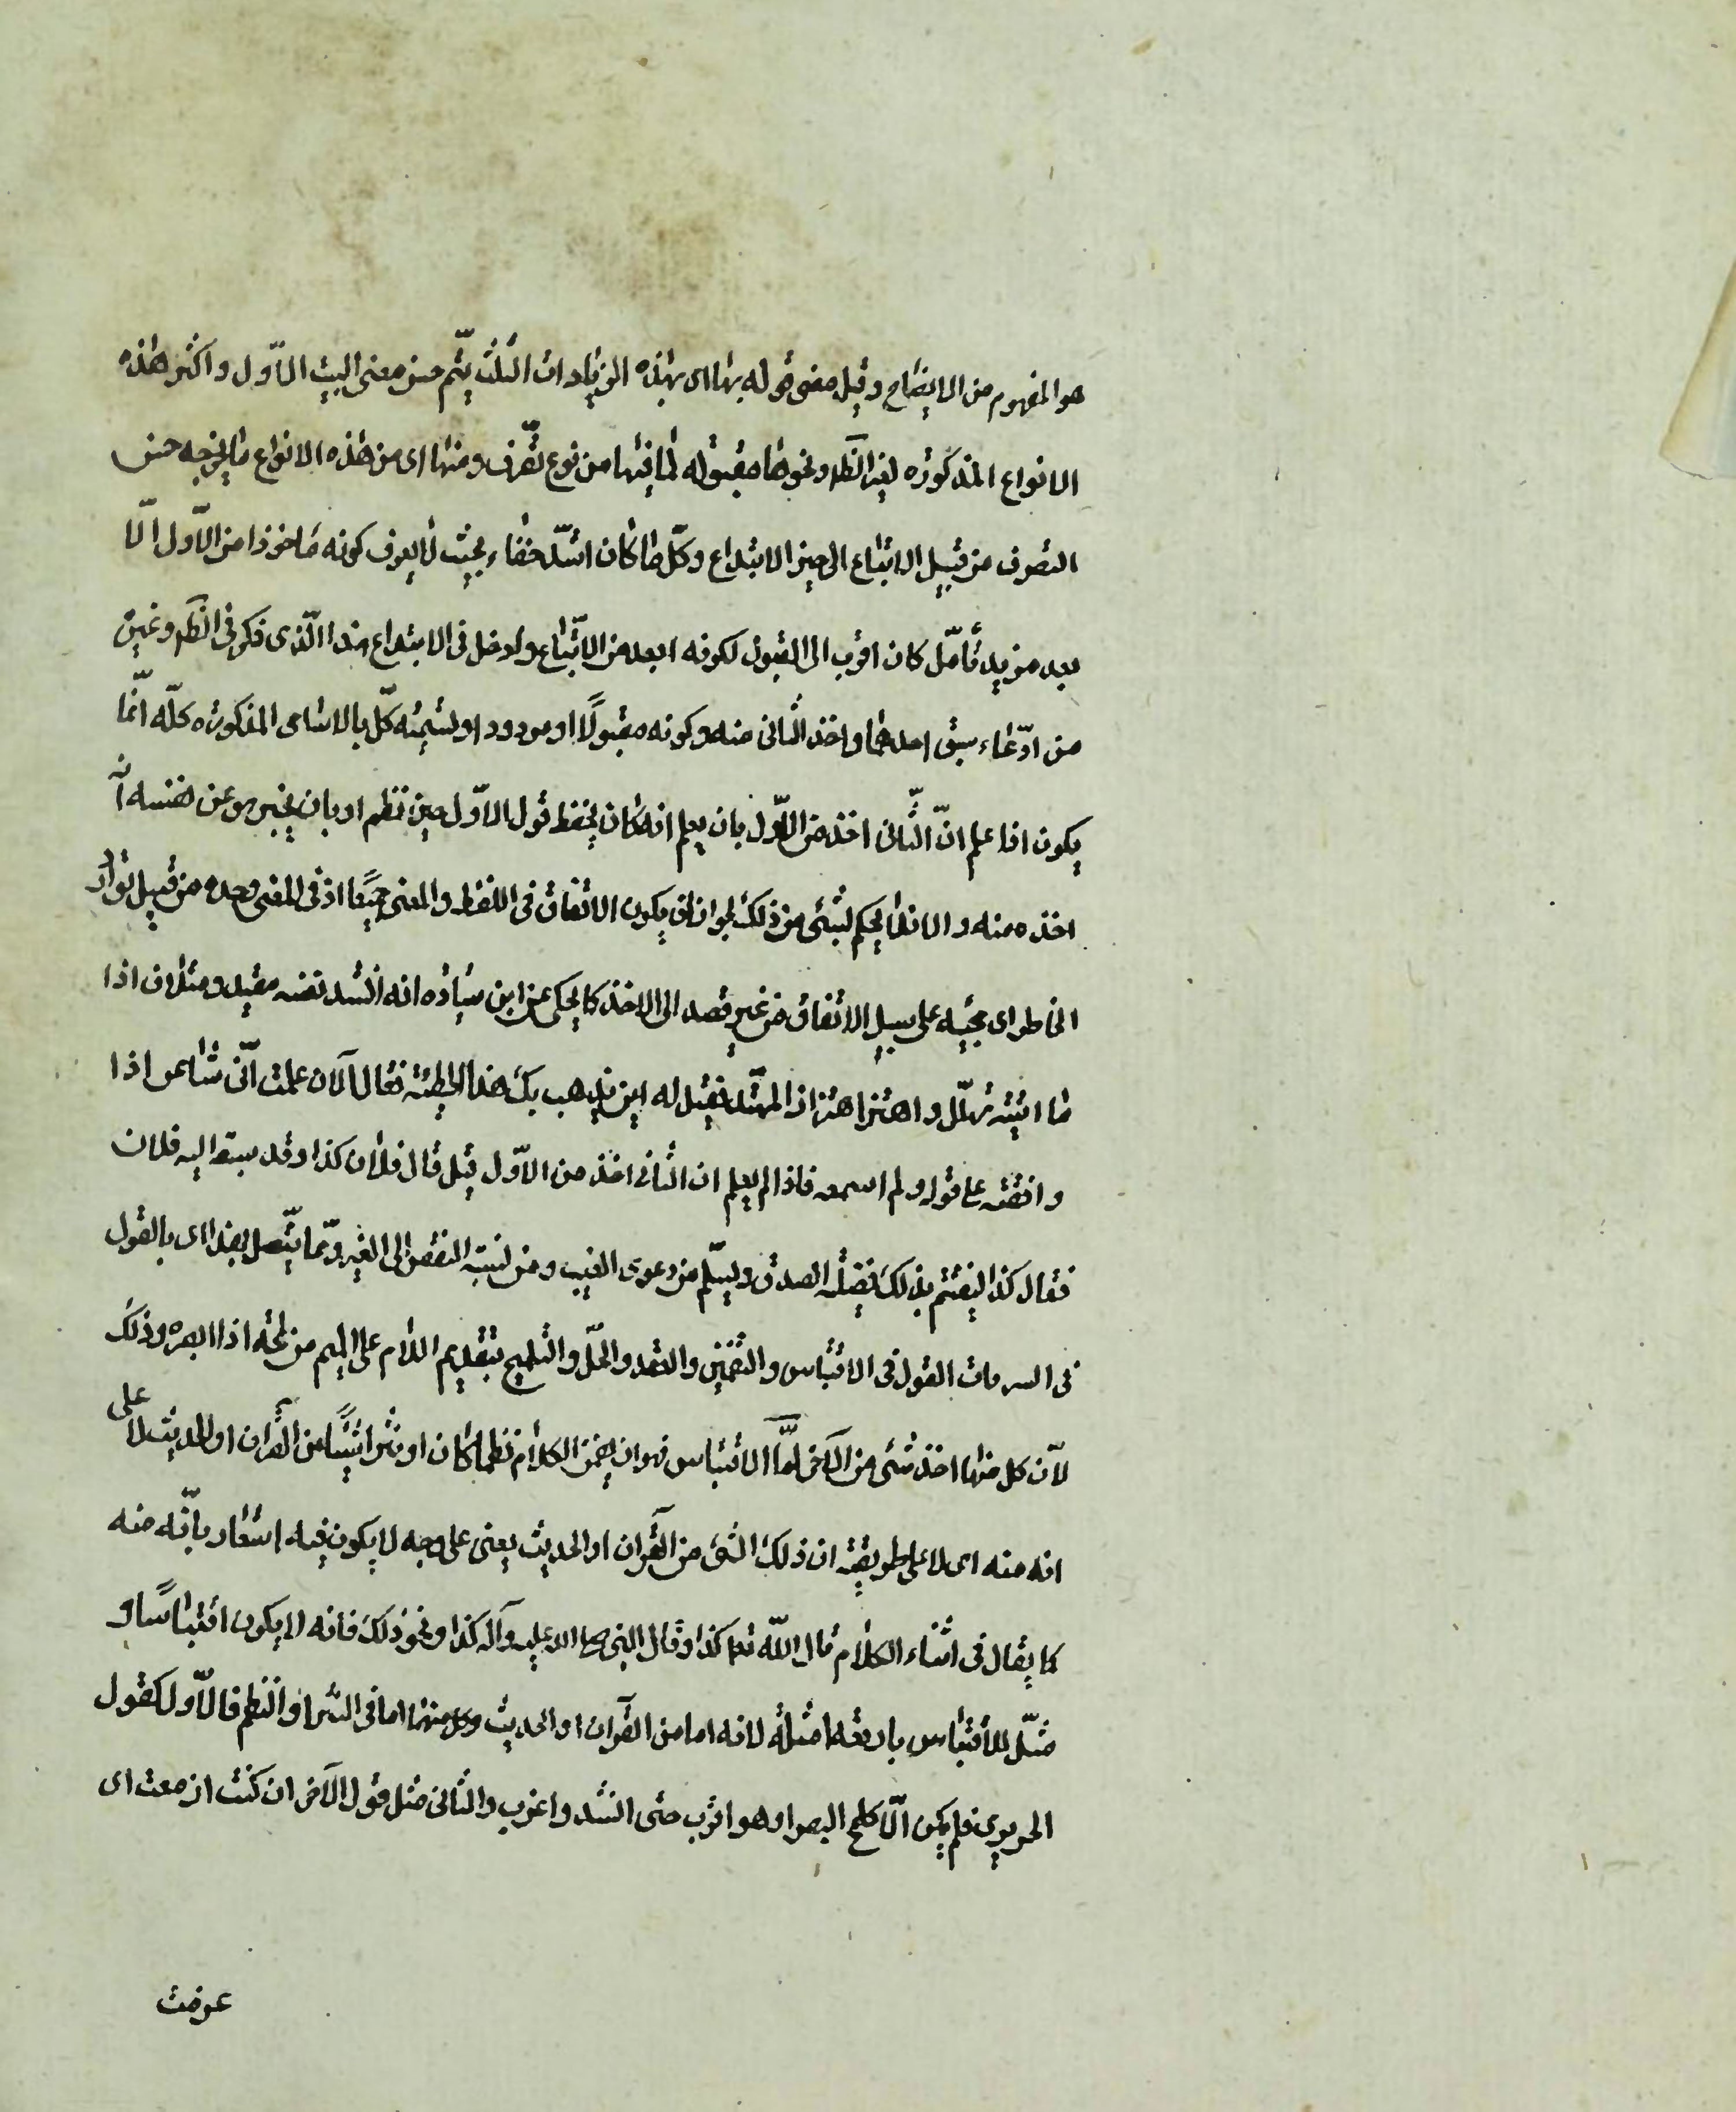 هو المفهوم من الايضاح وقيل معنى قوله بها اى بهذه الزيادات الثلث يتم حسن معنى البيت الاوّل واكثر هذه
الانواع المذكوره لغير الظ ونحوها مقبوله لما فيها من نوع تصّرف ومنها اى من هذه الانواع ما يخرجه حسن
التصرف من قبيل الاتباع الى حيز الابتداع وكلّ ما كان اشدّ خفاء بحيث لا يعرف كونه ماخوذا من الاوّل الّا
بعد مزيد تأمّل كان اقرب الى القبول لكونه ابعد من الاتّباع وادخل فى الابتداع هذا الّذى ذكر فى الظ وغيره
من ادّعاء سبق احدهما واخذ الثانى منه وكونه مقبولًا او مردودا وتسميّه كلّ بالاسامى المذكوره كلّه انّما
يكون اذا علم انّ الثّانى اخذ من الاوّل بان يعلم انه كان يحفظ قول الاوّل حين نظم او بان يخبر هو عن نفسه انّه
اخذه منه والا فلا يحكم بشئ من ذلك لجواز ان يكون الاتفاق فى اللفظ والمعنى جميعًا او فى المعنى وحده من قبيل توارد
الخاطر اى مجيئه على سبيل الاتفاق من غير قصد الى الاخذ كما يحكى عن ابن ميّاده انه انشد لنفسه مفيد ومتلاف اذا
ما اتيته تهلّل واهتز اهتزاز المهنّد فقيل له اين يذهب بك هذا للحطيئة فقال الآن علمت انّى شاعر اذا
وافقته على قوله ولم اسمعه فاذا لم يعلم ان الثانى اخذ من الاوّل قيل قال فلان كذا وقد سبقه اليه فلان
فقال كذا ليغتنم بذلك فضيله الصدق ويسلّم من دعوى الغيب ومن نسبة النقص الى الغير وممّا يتّصل بهذا اى بالقول
فى السرقات القول فى الاقتباس والتضمين والعقد والحلّ والتلميح بتقديم اللام على الميم من لمحه اذا ابصره وذلك
لانّ كل منها اخذ شئ من الآخر امّا الاقتباس فهو ان يضمن الكلام نظما كان او نثرا شيئًا من القرآن او الحديث لا على
انه منه اى لا على طريقة ان ذلك الشئ من القرآن او الحديث يعنى على وجه لا يكون فيه اشعار بانّه منه
كما يقال فى اثناء الكلام قال اللّه تعا كذا وقال النبى صلى الله عليه وآله كذا ونحو ذلك فانه لا يكون اقتباسًا و
مثّل للاقتباس باربعه امثله لانه اما من القرآن او الحديث وكل منهما اما فى النثر او النظم فالاوّل كقول
الحريرى فلم يكن الّا كلمح البصر او هو اقرب حتى انشد واغرب والثانى مثل قول الآخر ان كنت ازمعت اى
عزمت